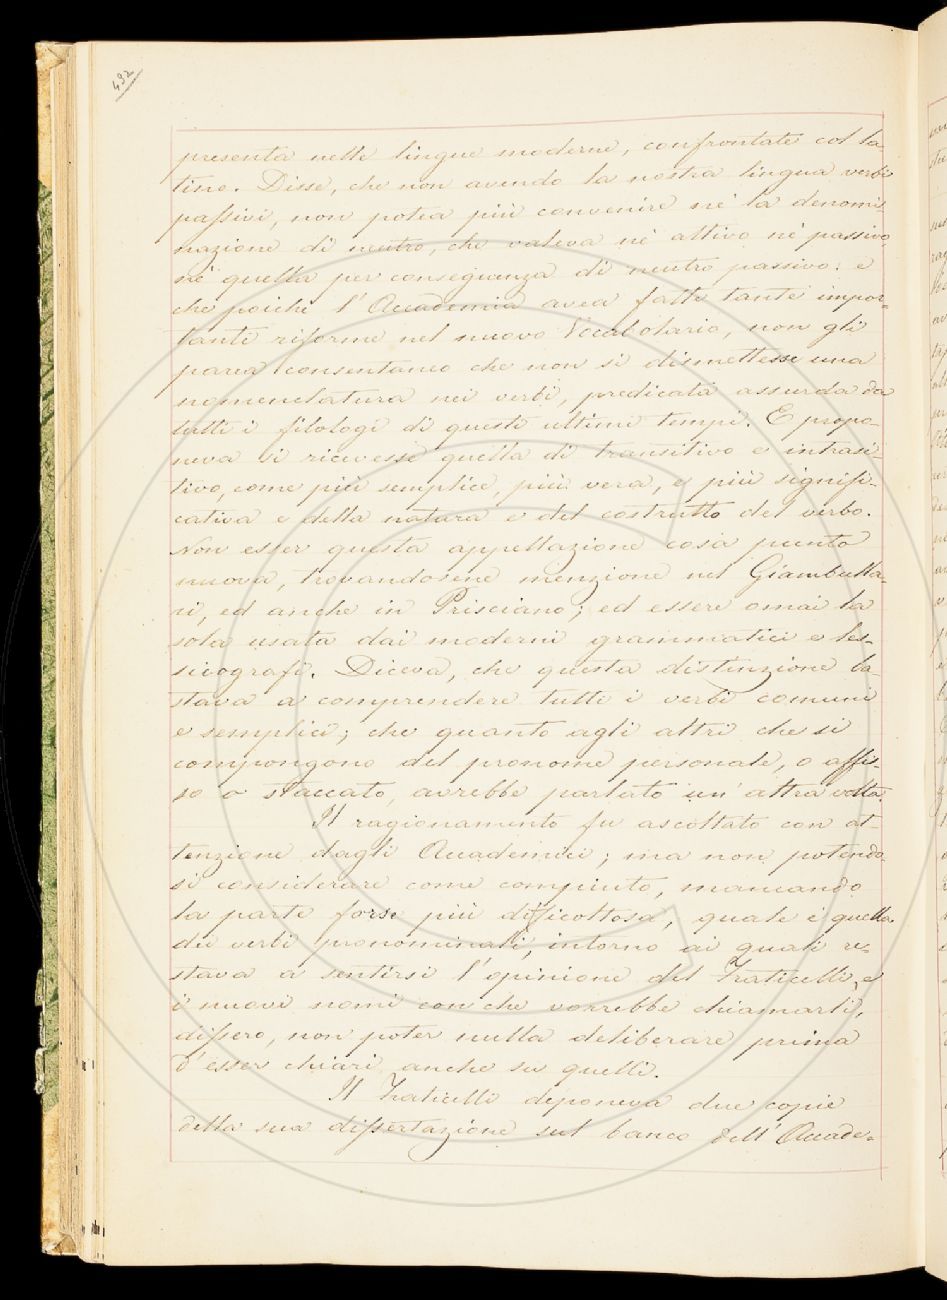 492
presenta nelle lingue moderne, confrontate col la-
tino. Disse, che non avendo la nostra lingua verbi
passivi, non potea più convenire nè la denomi-
nazione di neutro, che valeva nè attivo nè passivo,
nè quella per conseguenza di neutro passivo: e
che poichè l'Accademia avea fatte tante impor-
tanti riforme nel nuovo Vocabolario, non gli
parea consentaneo che non si dismettesse una
nomenclatura nei verbi, predicata assurda da
tutti i filologi di questi ultimi tempi. E propo-
neva si ricevesse quella di transitivo e intrasi-
tivo, come più semplice, più vera, e più signifi-
cativa e della natura e del costrutto del verbo.
Non esser questa appellazione cosa punto
nuova, trovandosene menzione nel Giambulla-
ri, ed anche in Prisciano; ed essere omai la
sola usata dai moderni grammatici e les-
sicografi. Diceva, che questa distinzione ba-
stava a comprendere tutti i verbi comuni
e semplici; che quanto agli altri che si
compongono del pronome personale, o affis-
so o staccato, avrebbe parlato un'altra volta.
Il ragionamento fu ascoltato con at-
tenzione dagli Accademici; ma non potendo-
si considerare come compiuto, mancando
la parte forse più difficoltosa, quale è quella
dei verbi pronominali, intorno ai quali re-
stava a sentirsi l'opinione del Fraticelli, e
i nuovi nomi con che vorrebbe chiamarli,
dissero, non poter nulla deliberare prima
d'esser chiari anche su quelli.
Il Fraticelli deponeva due copie
della sua dissertazione sul banco dell'Accade-